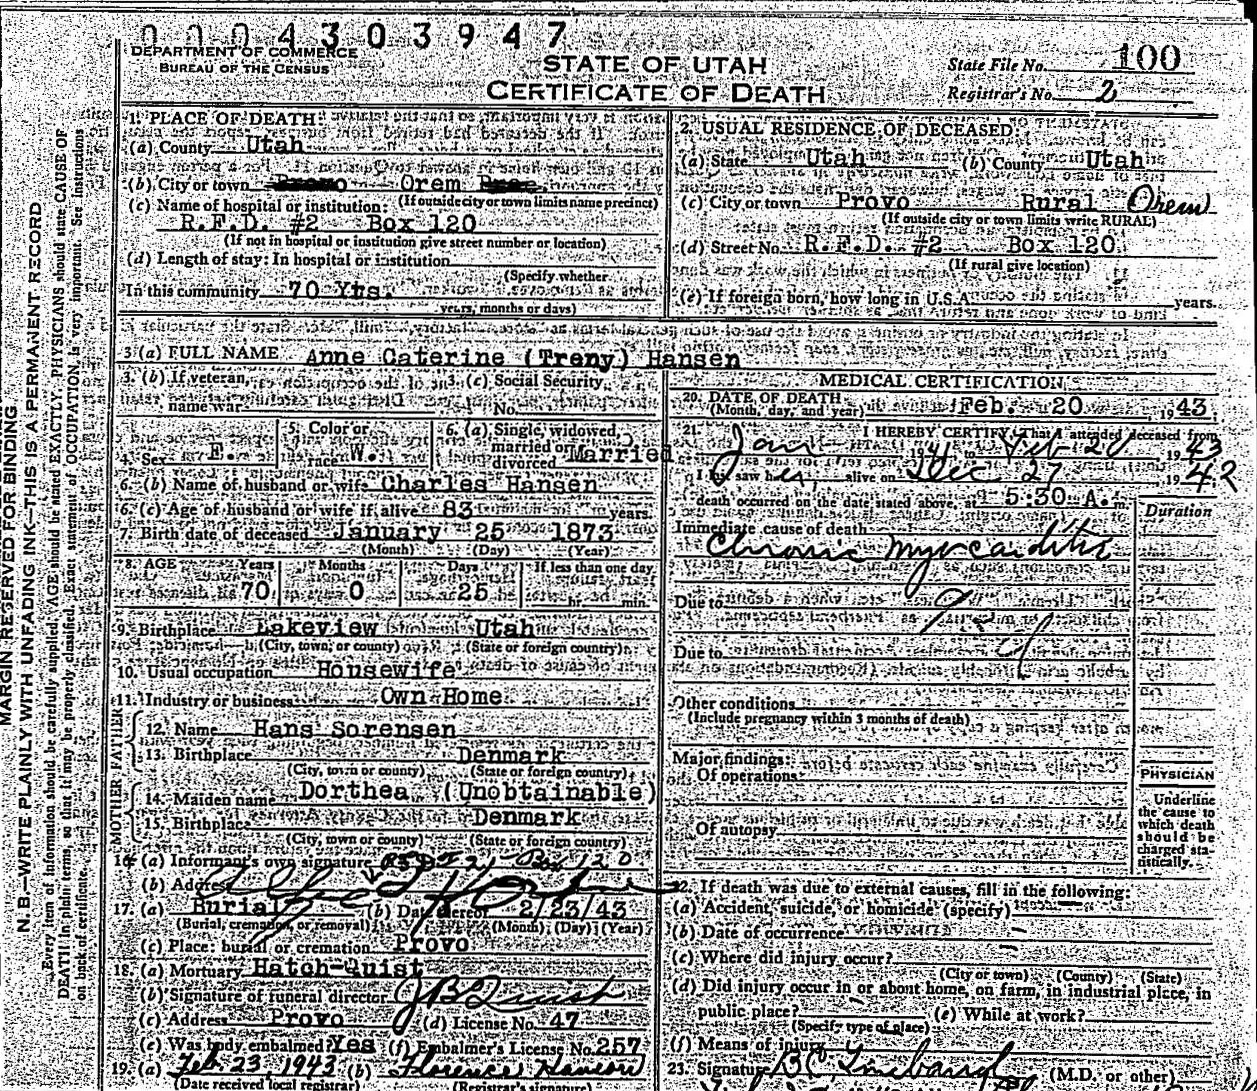 0004303947
DEPARTMENT OF COMMERCE
BUREAU OF THE CENSUS
STATE OF UTAH
CERTIFICATE OF DEATH
State File No. 100
Registrar's No. 2
1. PLACE OF DEATH:
(a) County Utah
(b) City or town Orem
(If outside city or town limits name precinct)
(c) Name of hospital or institution:
R.F.D. #2 Box 120
(If not in hospital or institution give street number or location)
(d) Length of stay: In hospital or institution
(Specify whether
In this community 70 Yrs.
years, months or days)
2. USUAL RESIDENCE OF DECEASED:
(a) State Utah (b) County Utah
(c) City or town Provo Rural Orem
(If outside city or town limits write RURAL)
(d) Street No. R.F.D. #2 Box 120
(If rural give location)
(e) If foreign born, how long in U.S.A. years.
3. (a) FULL NAME Anne Caterine (Treny) Hansen
3. (b) If veteran, name war
3. (c) Social Security No.
4. Sex F.
5. Color or race W.
6. (a) Single, widowed, married or divorced Married
6. (b) Name of husband or wife Charles Hansen
6. (c) Age of husband or wife if alive 83 years
7. Birth date of deceased January 25 1873
(Month) (Day) (Year)
8. AGE Years Months Days If less than one day
70 0 25 hr. min.
9. Birthplace Lakeview Utah
(City, town, or county) (State or foreign country)
10. Usual occupation Housewife
11. Industry or business Own Home
FATHER
12. Name Hans Sorensen
13. Birthplace Denmark
(City, town or county) (State or foreign country)
MOTHER
14. Maiden name Dorthea (Unobtainable)
15. Birthplace Denmark
(City, town or county) (State or foreign country)
16. (a) Informant's own signature Box 120
(b) Address
17. (a) Burial (b) Date thereof 2/23/43
(Burial, cremation, or removal) (Month) (Day) (Year)
(c) Place: burial or cremation Provo
18. (a) Mortuary Hatch-Quist
(b) Signature of funeral director J B Quist
(c) Address Provo (d) License No. 47
(e) Was body embalmed? Yes (f) Embalmer's License No. 257
19. (a) Feb. 23, 1943 (b) Florence Hanson
(Date received local registrar) (Registrar's signature)
MEDICAL CERTIFICATION
20. DATE OF DEATH
(Month, day, and year) Feb. 20 1943
21. I HEREBY CERTIFY, That I attended deceased from
Jan 1941 to Feb 20 1943
I last saw her alive on Dec 27 1942
death occurred on the date stated above, at 5:30 A. m.
Duration
Immediate cause of death
Chronic Myocarditis
Due to
Due to
Other conditions
(Include pregnancy within 3 months of death)
Major findings:
Of operations
Of autopsy
PHYSICIAN
Underline
the cause to
which death
should be
charged sta-
tistically.
22. If death was due to external causes, fill in the following:
(a) Accident, suicide, or homicide (specify)
(b) Date of occurrence
(c) Where did injury occur?
(City or town) (County) (State)
(d) Did injury occur in or about home, on farm, in industrial place, in
public place? (e) While at work?
(Specify type of place)
(f) Means of injury
23. Signature (M.D. or other)
MARGIN RESERVED FOR BINDING
N. B.—WRITE PLAINLY WITH UNFADING INK—THIS IS A PERMANENT RECORD
Every item of information should be carefully supplied. AGE should be stated EXACTLY. PHYSICIANS should state CAUSE OF
DEATH in plain terms, so that it may be properly classified. Exact statement of OCCUPATION is very important. See instructions
on back of certificate.